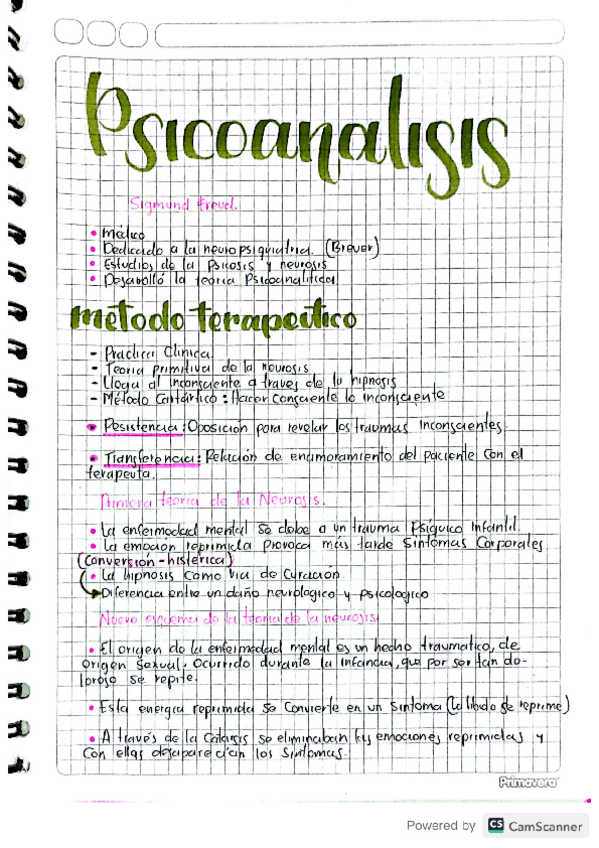 Psicoanalisis
Sigmund Freud.
• Médico
• Dedicado a la neuropsiquiatria. (Breuer)
• Estudios de la Psicosis y neurosis
• Desarrolló la teoria Psicoanalitica
metodo terapeutico
- Practica Clinica
- Teoria primitiva de la neurosis
- Llega al inconsciente a traves de la hipnosis
- Método Cartártico: Hacer Consciente lo inconsciente
• Resistencia: Oposición para revelar los traumas inconscientes.
• Transferencia: Relación de enamoramiento del paciente con el
terapeuta.
Primera teoria de la Neurosis.
• La enfermedad mental se debe a un trauma Psíquico Infantil.
• La emoción reprimida provoca más tarde Sintomas Corporales
(Conversión-histerica)
• La hipnosis como via de Curación
Diferencia entre un daño neurologico y psicologico
Nuevo esquema de la teoria de la neurosis
• El origen de la enfermedad mental es un hecho traumatico, de
origen sexual. Ocurrido durante la infancia, que por ser tan do-
loroso se repite.
• Esta energia reprimida se Convierte en un sintoma (La libido se reprime)
• A través de la Catarsis se eliminaban las emociones reprimidas y
Con ellas desaparecian los Sintomas.
Primavera
Powered by CS CamScanner